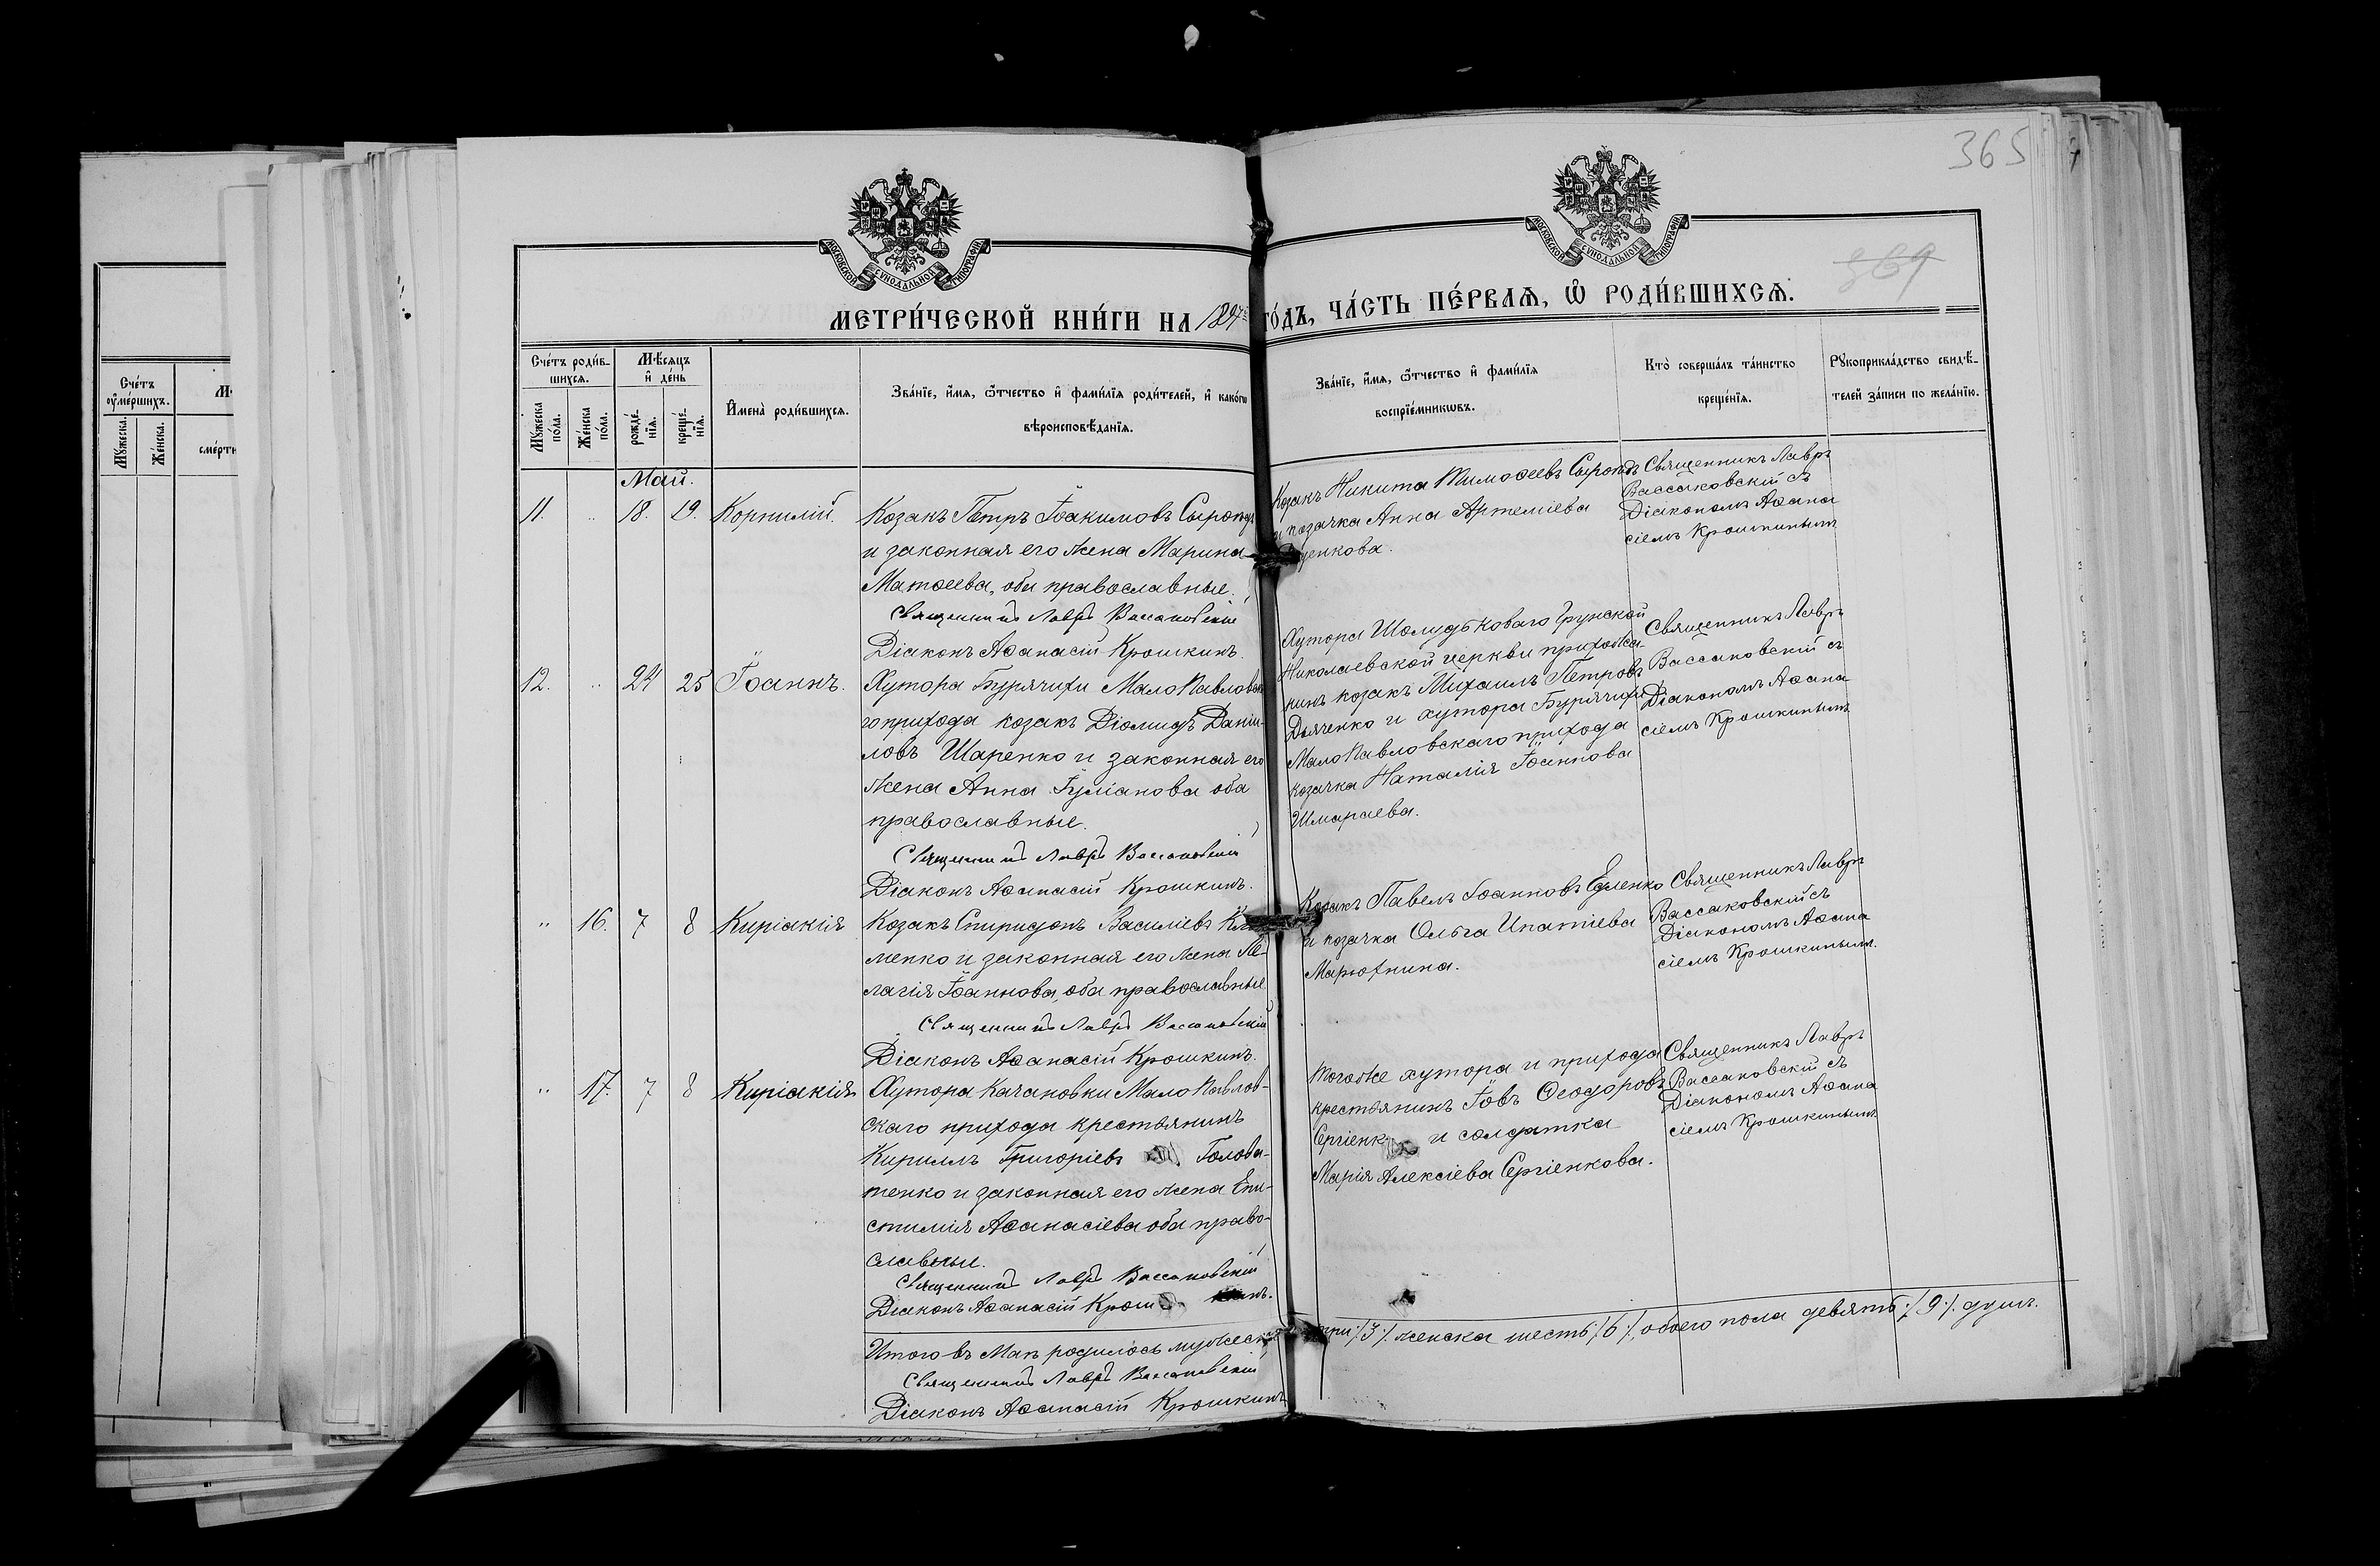 365
369
МОСКОВСКОЙ СѴНОДАЛЬНОЙ ТИПОГРАФІИ
МОСКОВСКОЙ СѴНОДАЛЬНОЙ ТИПОГРАФІИ
МЕТРИ́ЧЕСКОЙ КНИ́ГИ НА 1894 ГО́ДЪ, ЧА́СТЬ ПЕ́РВАЯ, Ѽ РОДИ́ВШИХСЯ.
Сче́тъ оу҆ме́ршихъ.
Мꙋ́жеска.
Же́нска.
Сче́тъ роди́в-
шихся.
Мꙋ́жеска по́ла.
Же́нска по́ла.
Мѣ́сяцъ
и҆ де́нь
рожде́-
нїя.
креще́-
нїя.
И҆мена̀ роди́вшихся.
Зва́нїе, и҆́мя, ѻ҆́тчество и҆ фами́лїя роди́телей, и҆ како́гѡ
вѣроисповѣ́данїя.
Зва́нїе, и҆́мя, ѻ҆́тчество и҆ фами́лїя
воспрїе́мникѡвъ.
Кто̀ соверша́лъ та́инство
креще́нїя.
Рꙋкоприкла́дство свидѣ́-
телей за́писи по жела́нїю.
Май.
11. 18. 19. Корнилій.
Козакъ Петръ Іоакимовъ
и законная его жена Марина
Матѳеева, оба православные.
Священникъ Лавръ Вассаковскій
Діаконъ Аѳанасій Крошкинъ.
Козакъ Никита Тимоѳеевъ
и козачка Анна Артеміева
Священникъ Лавръ
Вассаковскій съ
Діакономъ Аѳана
сіемъ Крошкинымъ
12. 24 25 Іоаннъ.
Хутора Бурячихи МалоПавловска
го прихода козакъ Діомидъ Даніи-
ловъ Шаренко и законная его
жена Анна Іуліанова оба
православные.
Священникъ Лавръ Вассаковскій
Діаконъ Аѳанасій Крошкинъ.
Хутора Шолудьковаго Грунской
Николаевской церкви прихожа-
нинъ козакъ Михаилъ Петровъ
Дьяченко и хутора Бурячихи
МалоПавловскаго прихода
козачка Наталія Іоаннова
Шмараева.
Священникъ Лавръ
Вассаковскій съ
Діакономъ Аѳана
сіемъ Крошкинымъ
16. 7 8 Киріакія
Козакъ Спиридонъ Василіевъ
менко и законная его жена Пе-
лагія Іоаннова, оба православные
Священникъ Лавръ Вассаковскій
Діаконъ Аѳанасій Крошкинъ.
Козакъ Павелъ Іоанновъ
и козачка Ольга Ипатіева
Марюхнина.
Священникъ Лавръ
Вассаковскій съ
Діакономъ Аѳана
сіемъ Крошкинымъ.
17. 7 8 Киріакія
Хутора Качановки МалоПавлов-
скаго прихода крестьянинъ
Кириллъ Григоріевъ Голова-
тенко и законная его жена Епи-
стимія Аѳанасіева оба право-
славные.
Священникъ Лавръ Вассаковскій
Діаконъ Аѳанасій
Тогоже хутора и прихода
крестьянинъ Іовъ Ѳеодоровъ
Сергіенко и солдатка
Марія Алексіева Сергіенкова.
Священникъ Лавръ
Вассаковскій съ
Діакономъ Аѳана
сіемъ Крошкинымъ
Итого въ Маѣ родилось мужеска три /3/, женска шесть /6/, обоего пола девять /9/ душъ.
Священникъ Лавръ Вассаковскій
Діаконъ Аѳанасій Крошкинъ